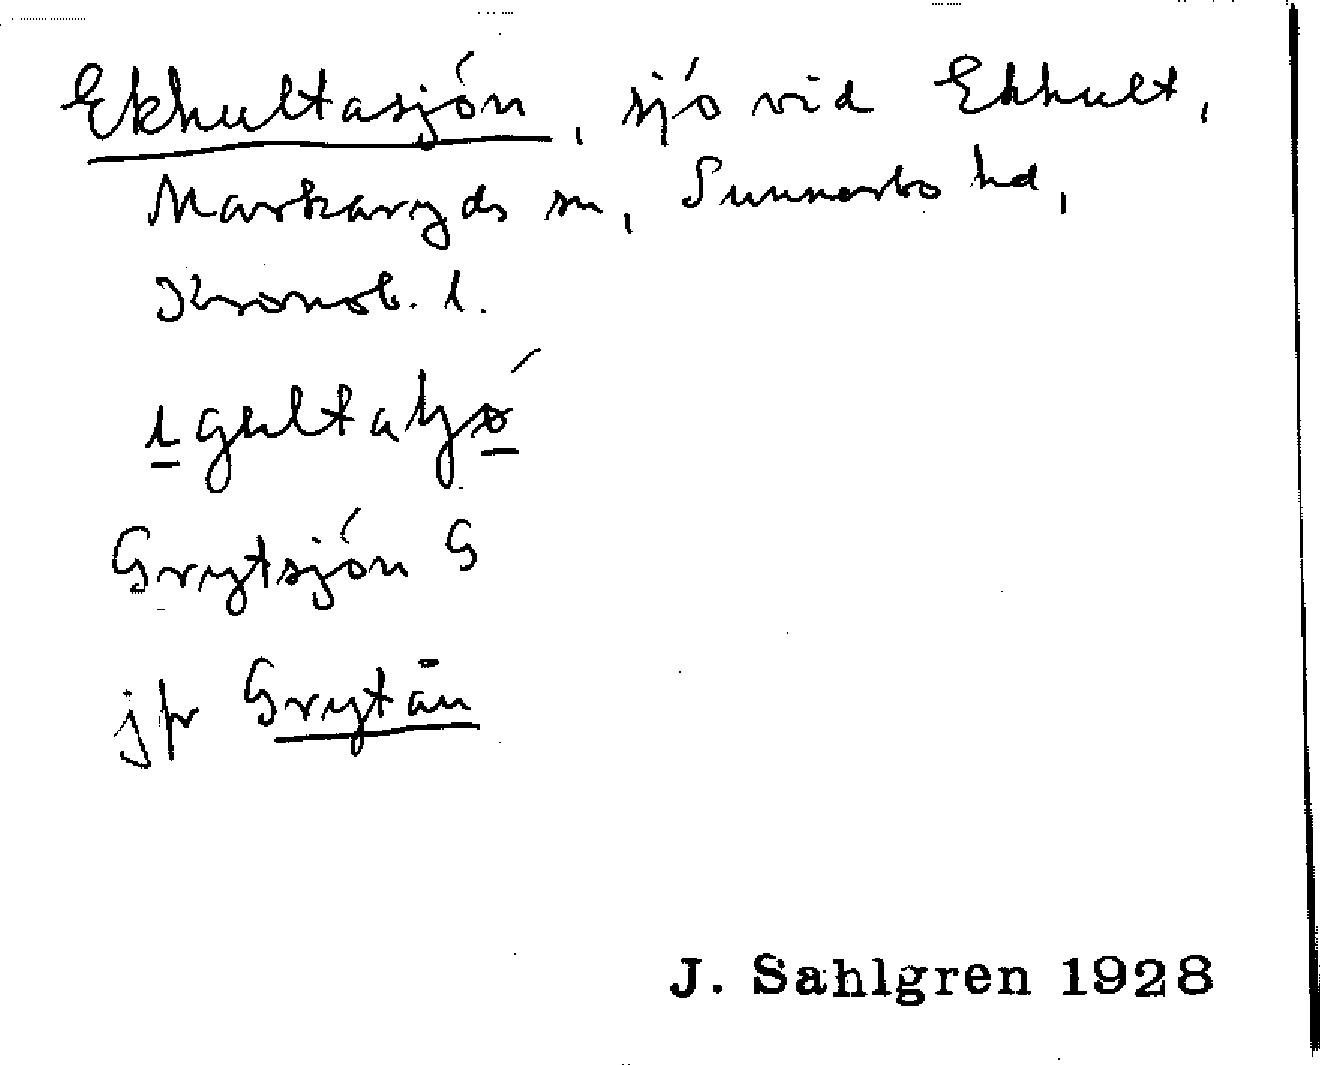 Ekhultasjön, sjö vid Ekhult,
Markaryds sn, Sunnerbo hd,
Kronob. l.
Grytsjön G
jfr Grytån
J. Sahlgren 1928